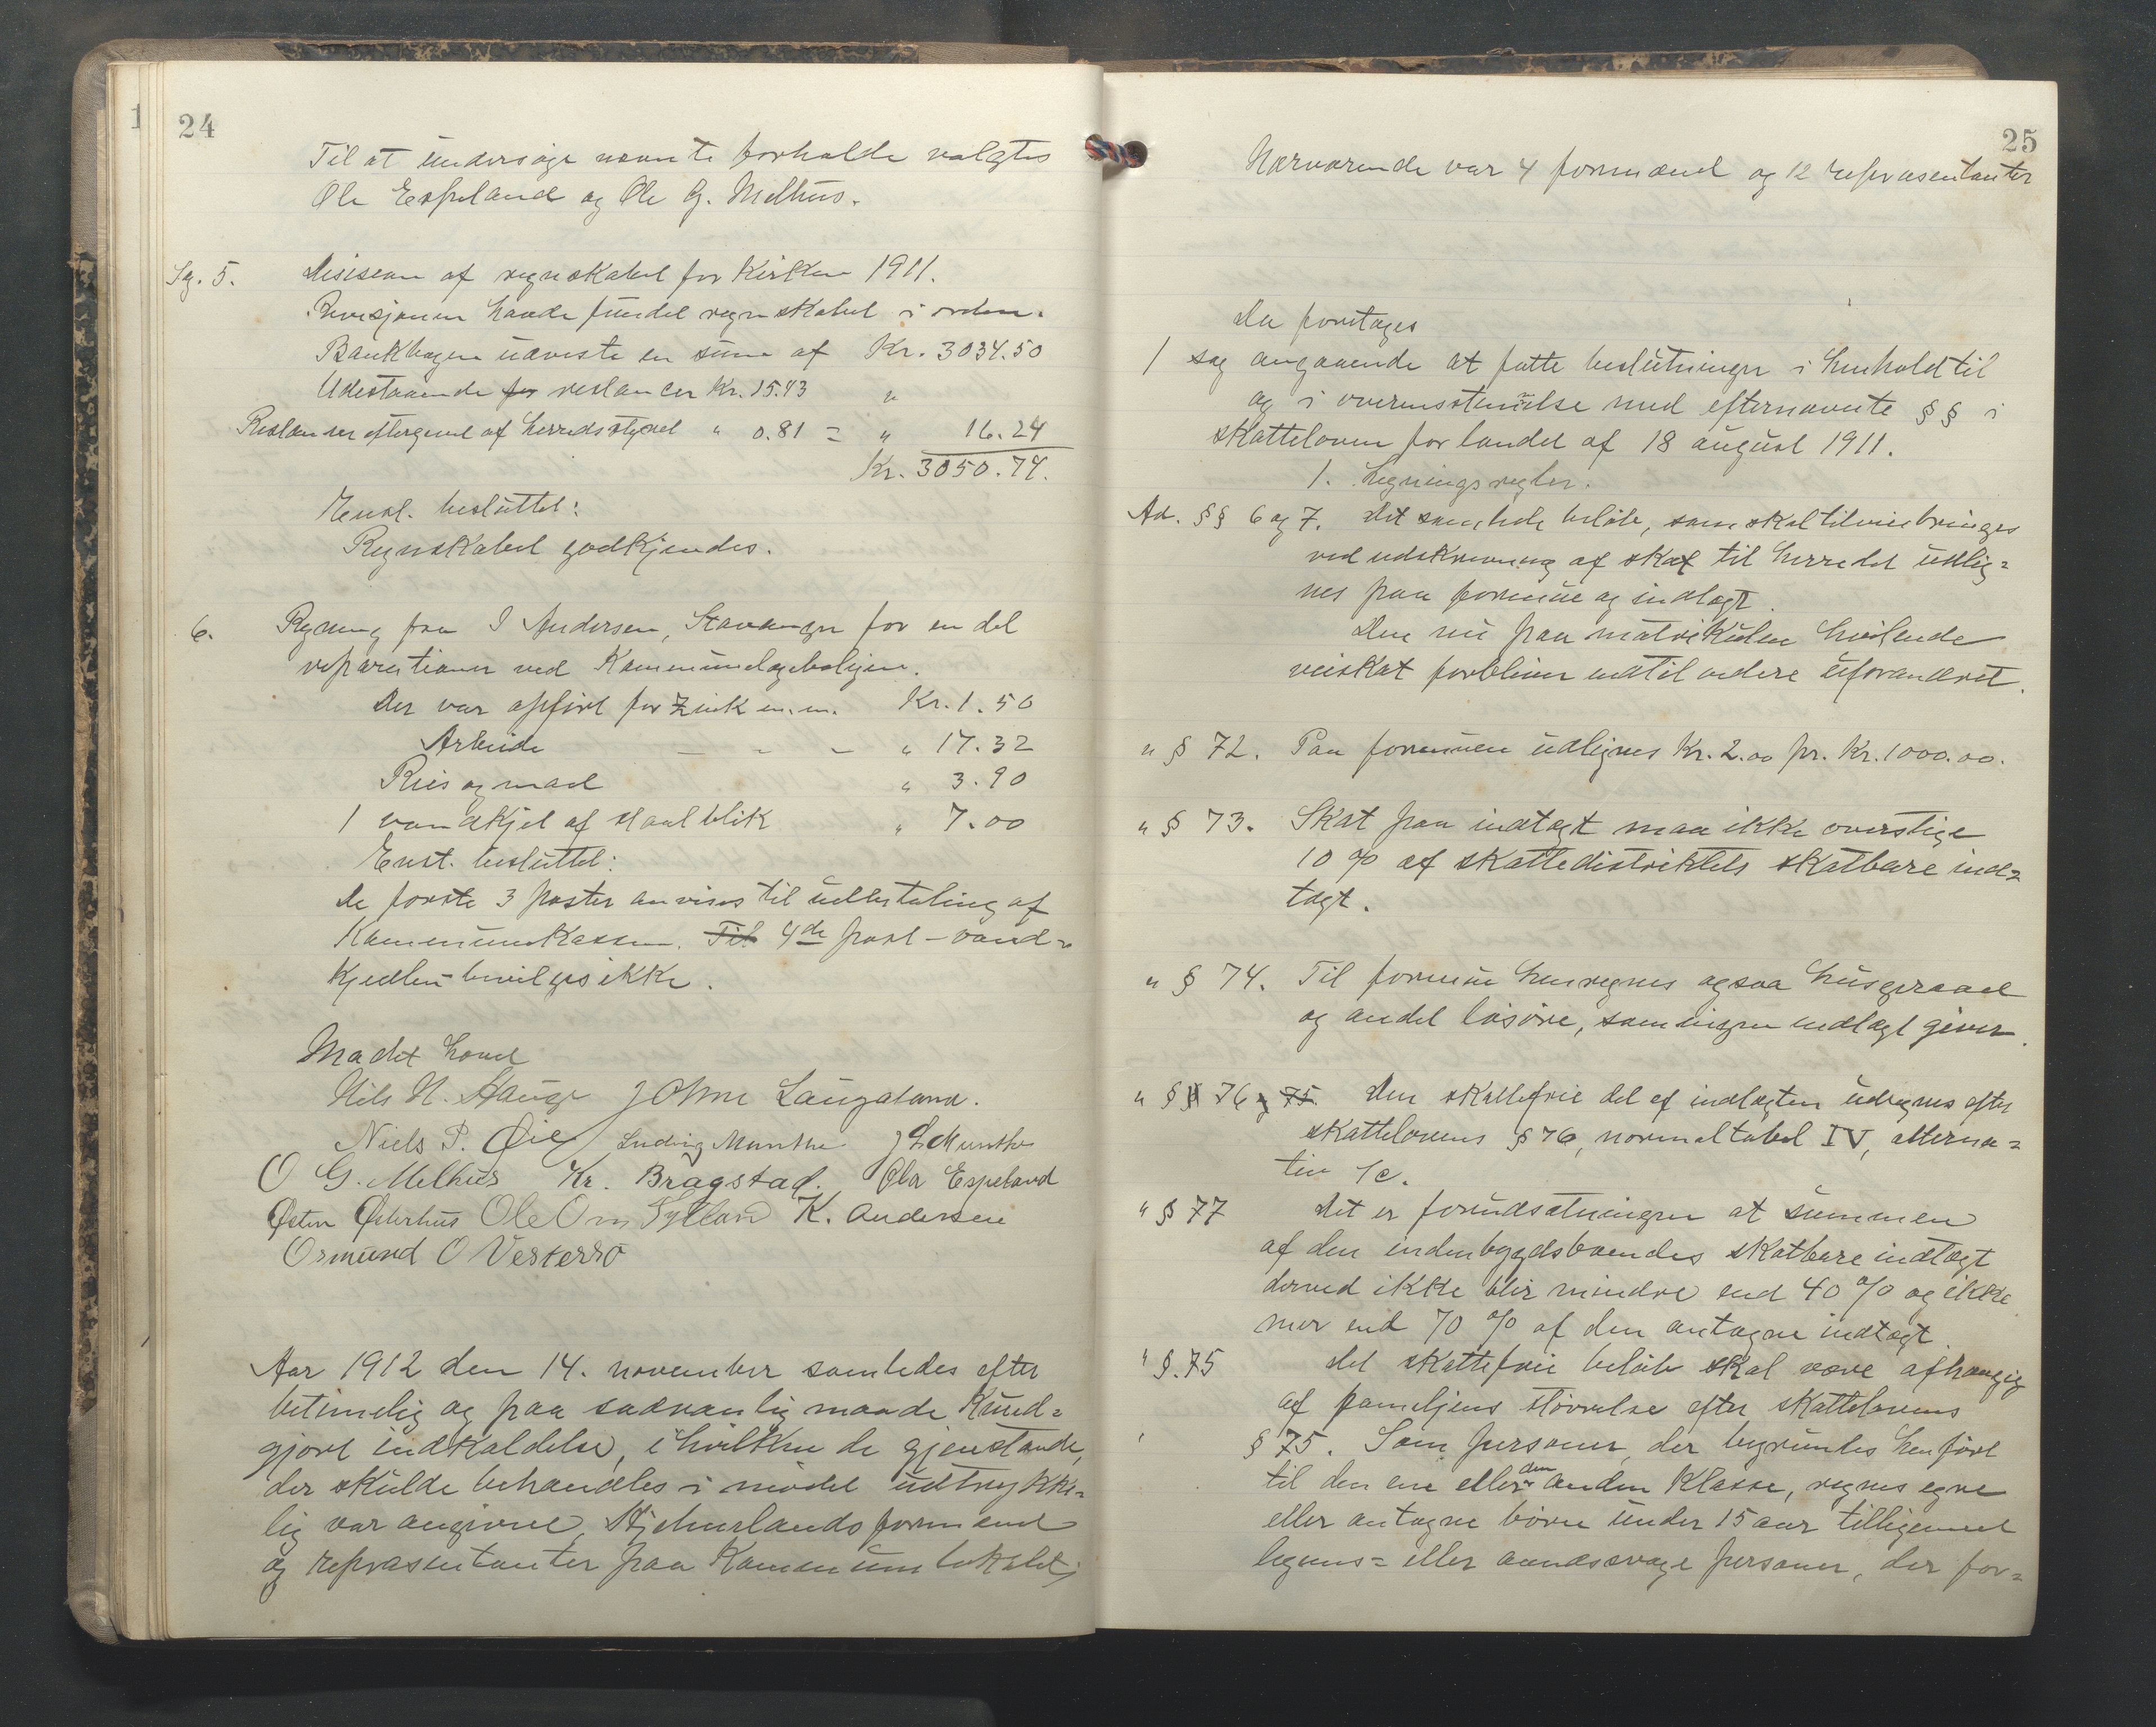 24
Til at undersøge nævnte forholde valgtes
Ole Espeland og Ole G. Melhus.
Sg. 5. Desisson af regnskabet for Kirken 1911.
Revisjonen havde fundet regnskabet i orden.
Bankbogen udviste en sum af Kr. 3034.50
Udestaaende for restancer Kr. 15.43 "
Restanser eftergivet af herredsstyret " 0.81 = " 16.24
Kr. 3050.74.
Enst. besluttet:
Regnskabet godkjendes.
6. Regning fra I Andersen, Stavanger for en del
reparationer ved Kommunelægeboligen.
Der var opført for Zink m.m. Kr. 1.50
Arbeide - - - " 17.32
Reis og mad " 3.90
1 vandkjel af staalblik " 7.00
Enst. besluttet:
De første 3 poster anvises til udbetaling af
Kommunekassen. Til 4de post - vand=
kjedlen - bevilges ikke.
Mødet hævet
Nils N. Hauge John Laugaland.
Niels P. Øie Ludvig Munthe J S Munthe
O G. Melhus Kr. Bragstad. Ola Espeland
Østen Østerhus Ole Om Fylland K. Andersen
Osmund O Vestersø
Aar 1912 den 14. november samledes efter
betimelig og paa sædvanlig maade kund=
gjort indkaldelse, i hvilken de gjenstande,
der skulde behandles i mødet udtrykke=
lig var angivne, Hjelmelands formænd
og repræsentanter paa Kommunelokalet,
25
Nærværende var 4 formænd og 12 repræsentanter
Der foretages
1 sag angaaende at fatte beslutninger i henhold til
og i overensstemmelse med efternævnte § § i
skatteloven for landet af 18 august 1911.
1. Ligningsregler.
Ad. §§ 6 og 7. Det samlede beløb, som skal tilveiebringes
ved udskrivning af skat til herredet udlig=
nes paa formue og indtægt.
Den nu paa matrikulen hvilende
veiskat forbliver indtil videre uforandret.
" § 72. Paa formuen udlignes Kr. 2.00 pr. Kr. 1000.00.
" § 73. Skat paa indtægt maa ikke overstige
10 % af skattedistriktets skatbare ind=
tægt.
" § 74. Til formue henregnes ogsaa husgeraad
og andet løsøre, som ingen indtægt giver.
" § 76 og 75. Den skattefrie del af indtægten udregnes efter
skattelovens § 76, normaltabel IV, alterna=
tiv 1c.
" § 77 Det er forudsætningen at summen
af den indenbygdsboendes skatbare indtægt
derved ikke blir mindre end 40 % og ikke
mer end 70 % af den antagne indtægt.
" §. 75 Det skattefrie beløb skal være afhængig
af familjens størrelse efter skattelovens
§ 75. Som personer, der begrundes henført
til den ene eller den anden klasse, regnes egne
eller antagne børn under 15 aar tilligemed
legems= eller aandssvage personer, der for=